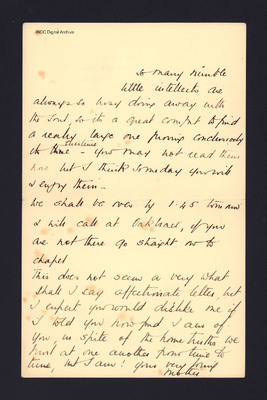 INDC Digital Archive
so many nimble
little intellects are
always so busy doing away with
the soul, so it's a great comfort to find
a really large one proving conclusively
existence
its – you may not read them
now but I think someday you will
& enjoy them –
We shall be over by 1.45 tomorrow
& will call at Oakhaves, if you
are not there go straight on to
chapel
This does not seem a very what
shall I say affectionate letter, but
I expect you would dislike me if
I told you how fond I am of
you, in spite of the home truths we
hurl at one another from time to
time, but I am! yours very loving
Mother